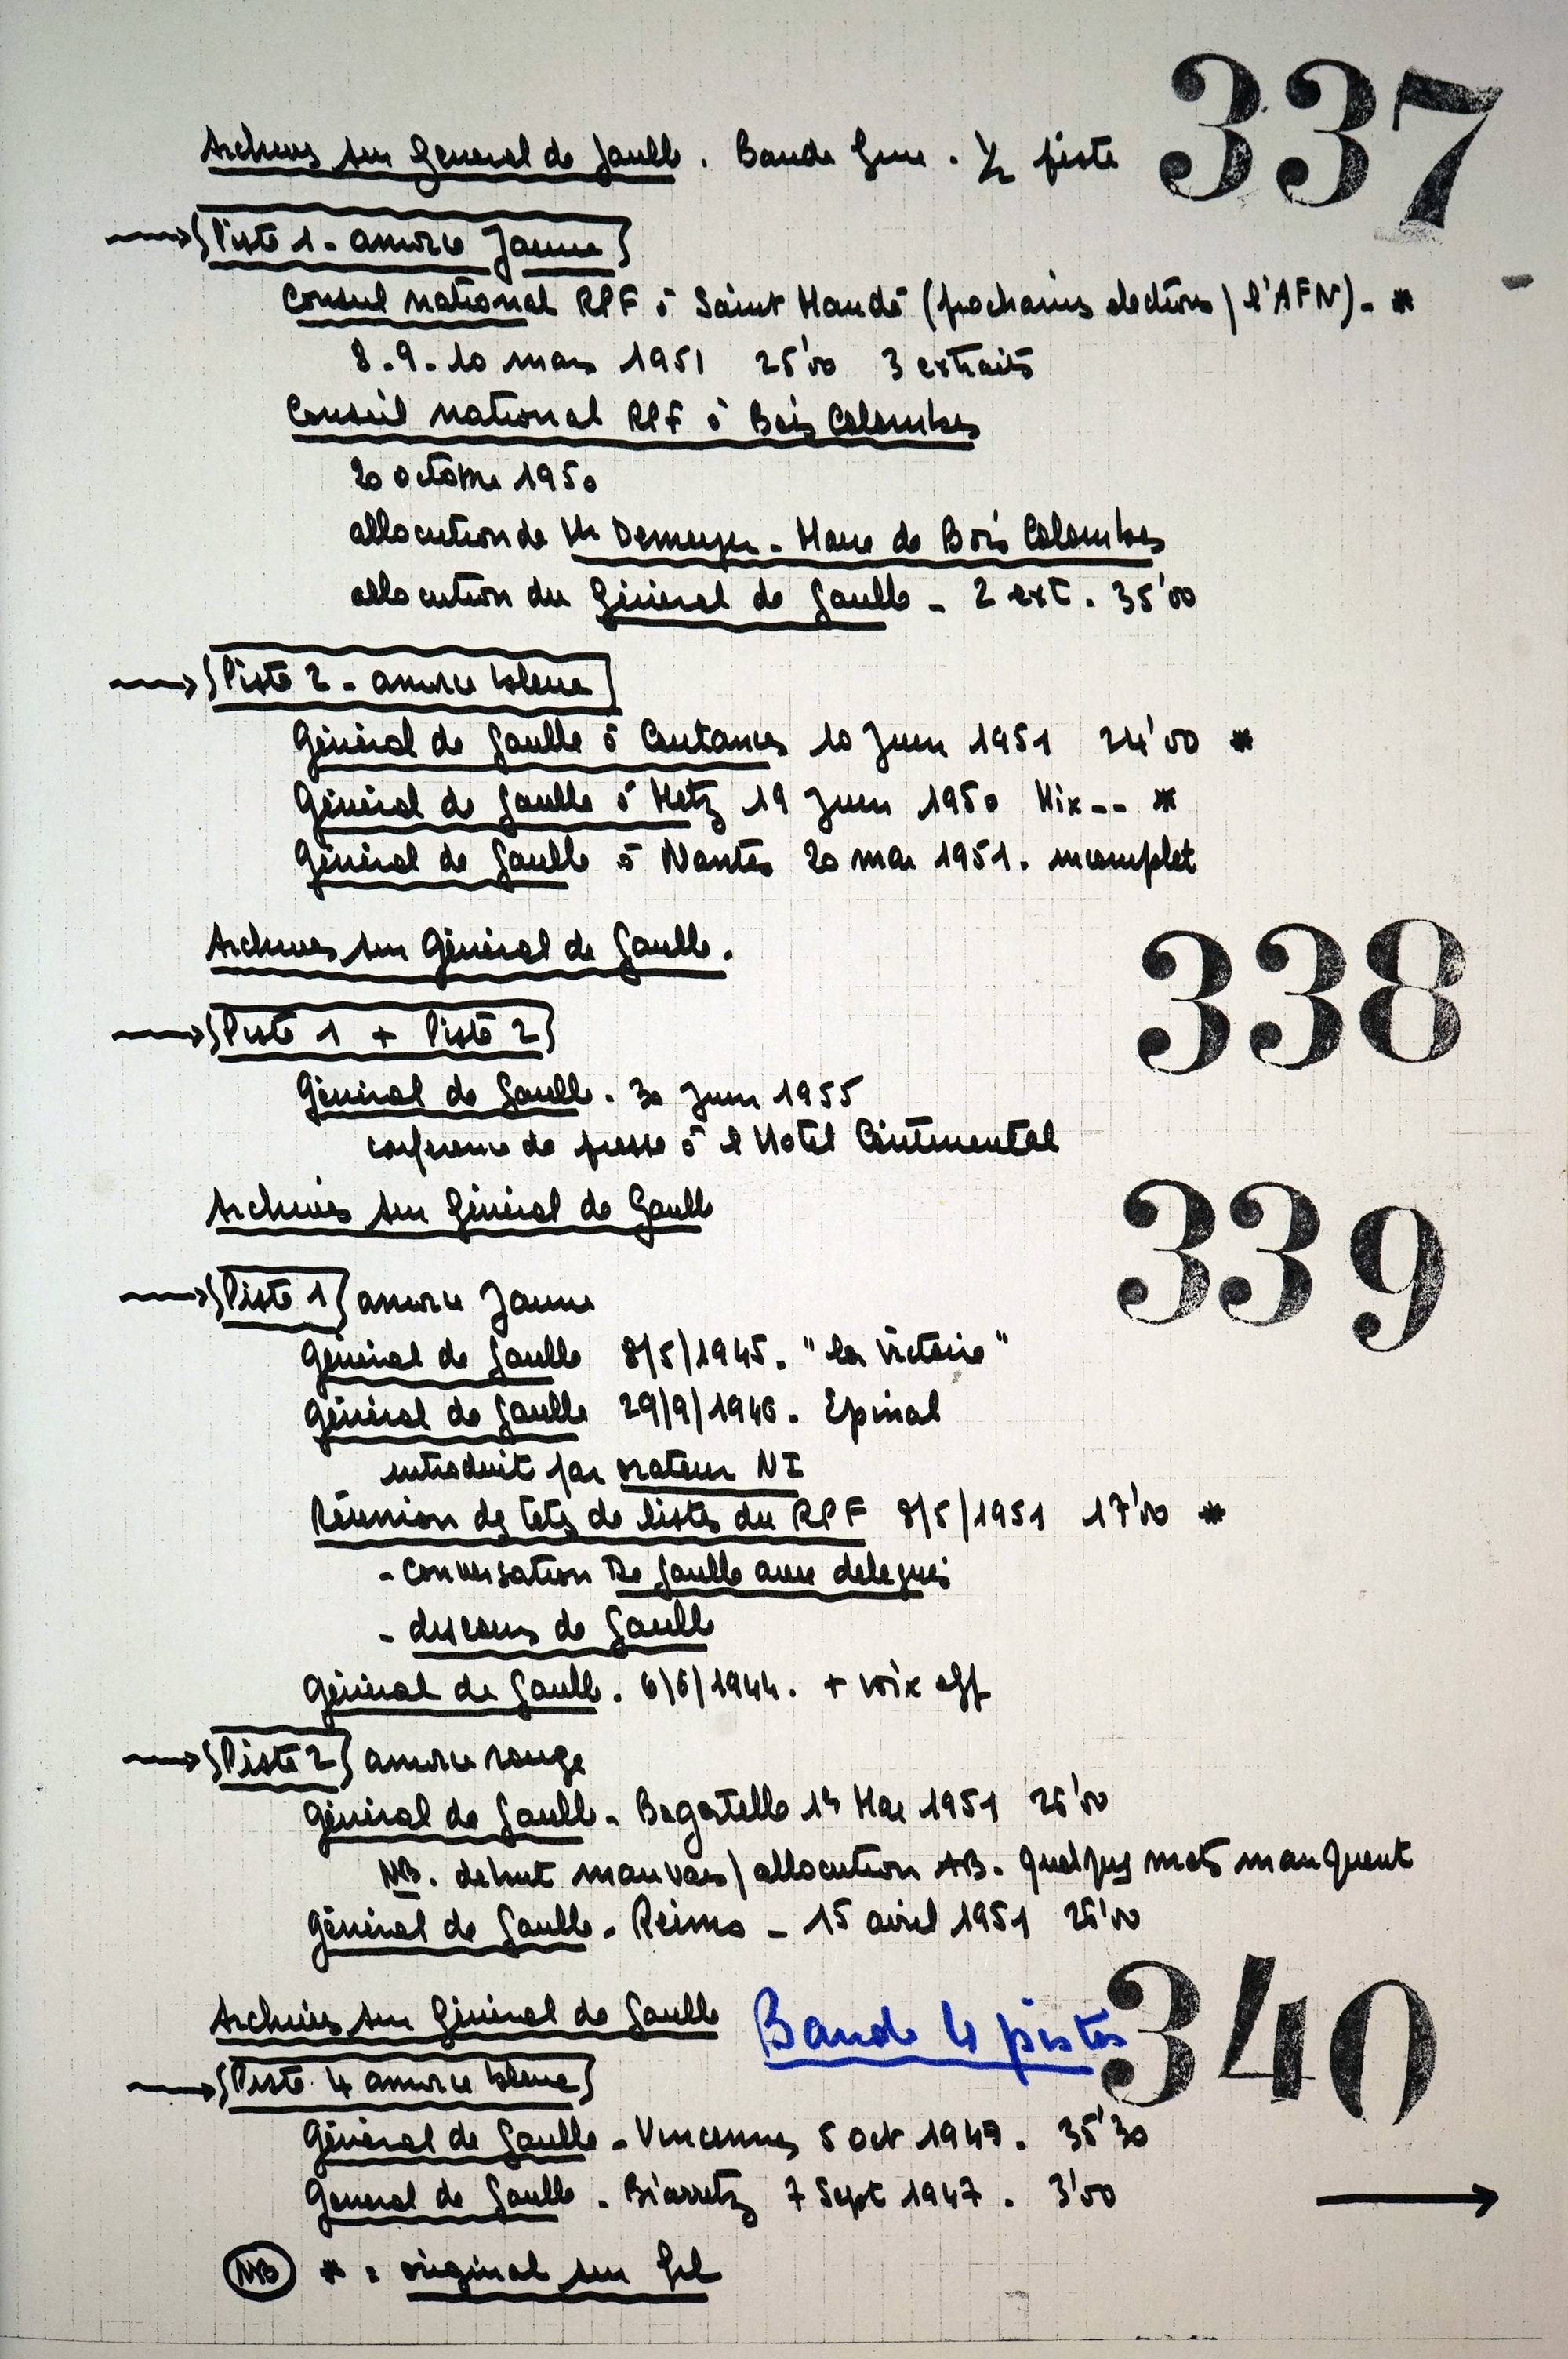 337
Archives sur General de Gaulle. Bande 6mm. 1/2 piste
Piste 1 - amorce Jaune
Conseil national RPF à Saint Mandé (prochaines elections / l'AFN). *
8.9.10 mars 1951 25'00 3 extraits
Conseil national RPF à Bois Colombes
20 octobre 1950
allocution de Mr - Maire de Bois Colombes
allocution du Général de Gaulle - 2 ext. 35'00
Piste 2 - amorce bleue
Général de Gaulle à Coutances 10 Juin 1951 24'00 *
Général de Gaulle à Metz 19 Juin 1950 Mix-- *
Général de Gaulle à Nantes 20 mai 1951. incomplet
338
Archives sur Général de Gaulle.
Piste 1 + Piste 2
Général de Gaulle. 30 Juin 1955
conference de presse à l Hotel Continental
339
Archives sur Général de Gaulle
Piste 1 amorce Jaune
Général de Gaulle 8/5/1945. "la Victoire"
Général de Gaulle 29/9/1946. Epinal
introduit par orateur NI
Réunion des tetes de listes du RPF 8/5/1951 17'00 *
- Conversation De Gaulle avec delegués
- discours de Gaulle
Général de Gaulle. 6/6/1944. + voix off
Piste 2 amorce rouge
Général de Gaulle - Bagatelle 1er Mai 1951 26'00
NB. debut mauvais / allocution AB. quelques mots manquent
Général de Gaulle - Reims - 15 avril 1951 26'00
340
Archives sur Général de Gaulle Bande 4 pistes
Piste 4 amorce bleue
Général de Gaulle - Vincennes 5 oct 1947. 35'30
General de Gaulle - Biarretz 7 Sept 1947. 3'00
NB * = original sur fil